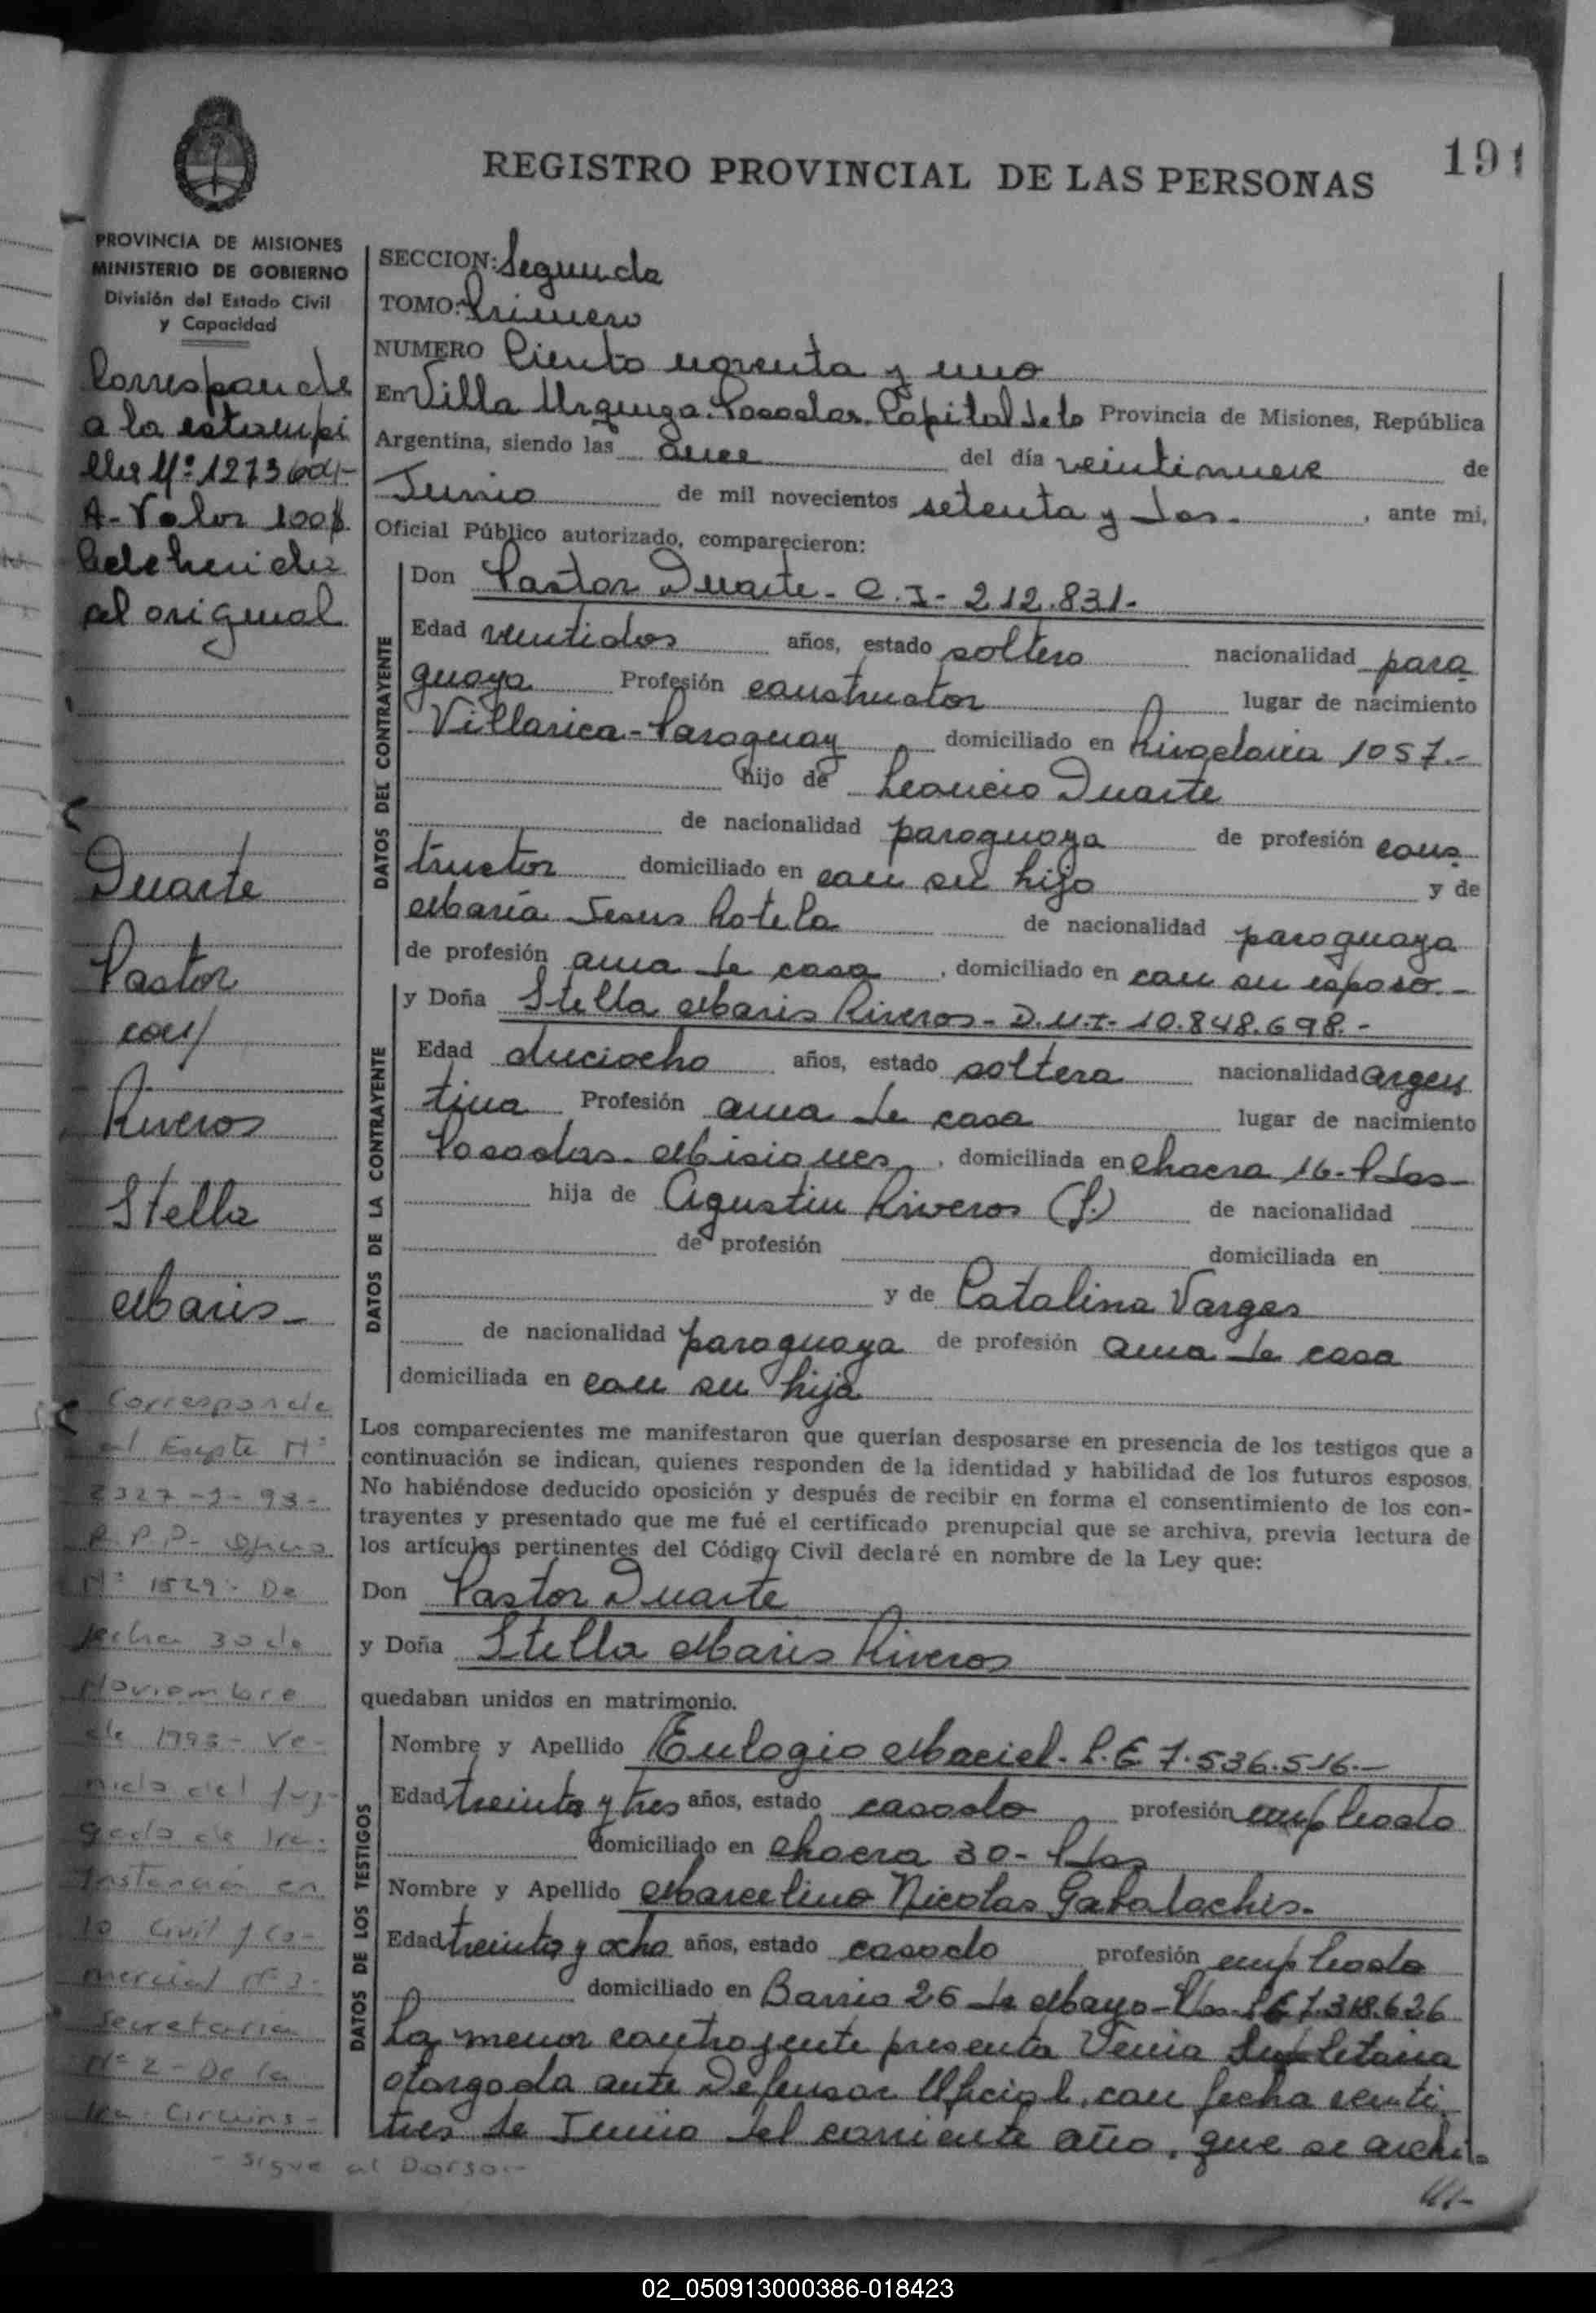 191
REGISTRO PROVINCIAL DE LAS PERSONAS
PROVINCIA DE MISIONES
MINISTERIO DE GOBIERNO
División del Estado Civil
y Capacidad
Corresponde
a la estampi
lla Nº 1273604-
A- Valor 100$
adherida
al original
Duarte
Pastor
con
Riveros
Stella
Maris-
Corresponde
al Expte Nº
2327-J-93-
R.P.P- Oficio
Nº 1529- De
fecha 30 de
Noviembre
de 1993- Ve-
nido del Juz-
gado de 1ra.
Instancia en
lo Civil y Co-
mercial Nº 3-
Secretaria
Nº 2- De la
1ra. Circuns-
- Sigue al Dorso.-
SECCION: Segunda
TOMO: Primero
NUMERO Ciento noventa y uno
En Villa Urquiza. Posadas. Capital de la Provincia de Misiones, República
Argentina, siendo las once del día veintinueve de
Junio de mil novecientos setenta y dos.- , ante mi,
Oficial Público autorizado, comparecieron:
DATOS DEL CONTRAYENTE
Don Pastor Duarte- C.I- 212.831-
Edad ventidos años, estado soltero nacionalidad para
guaya Profesión constructor lugar de nacimiento
Villarica-Paraguay domiciliado en Rivadavia 1057.-
hijo de Leoncio Duarte
de nacionalidad paraguaya de profesión cons
tructor domiciliado en con su hijo y de
María Jesus Rotela de nacionalidad paraguaya
de profesión ama de casa , domiciliado en con su esposo.-
DATOS DE LA CONTRAYENTE
y Doña Stella Maris Riveros- D.N.I- 10.848.698.-
Edad dieciocho años, estado soltera nacionalidad argen
tina Profesión ama de casa lugar de nacimiento
Posadas- Misiones , domiciliada en chacra 16- Pdas-
hija de Agustin Riveros (f.) de nacionalidad
de profesión domiciliada en
y de Catalina Vargas
de nacionalidad paraguaya de profesión ama de casa
domiciliada en con su hija
Los comparecientes me manifestaron que querían desposarse en presencia de los testigos que a
continuación se indican, quienes responden de la identidad y habilidad de los futuros esposos.
No habiéndose deducido oposición y después de recibir en forma el consentimiento de los con-
trayentes y presentado que me fué el certificado prenupcial que se archiva, previa lectura de
los artículos pertinentes del Código Civil declaré en nombre de la Ley que:
Don Pastor Duarte
y Doña Stella Maris Riveros
quedaban unidos en matrimonio.
DATOS DE LOS TESTIGOS
Nombre y Apellido Eulogio Maciel- L.E 7.536.516.-
Edad treinta y tres años, estado casado profesión empleado
domiciliado en chacra 30- Pdas
Nombre y Apellido Marcelino Nicolas Gabalachis.
Edad treinta y ocho años, estado casado profesión empleado
domiciliado en Barrio 25 de Mayo-Pdas. L.E 7.318.626
La menor contrayente presenta Venia Supletoria
otorgada ante Defensor Oficial, con fecha venti
tres de Junio del corriente año, que se archi-
///-
02_050913000386-018423